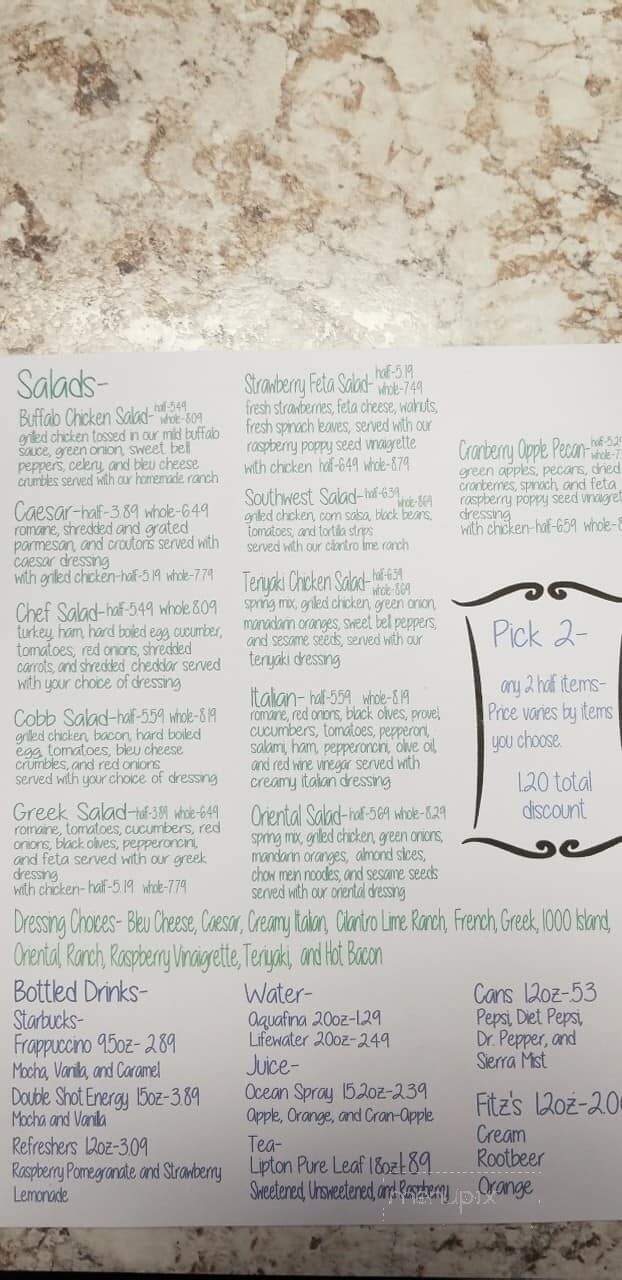 Salads-
Buffalo Chicken Salad- half-5.49 whole-8.09
grilled chicken tossed in our mild buffalo
sauce, green onion, sweet bell
peppers, celery, and bleu cheese
crumbles served with our homemade ranch
Caesar-half-3.89 whole-6.49
romaine, shredded and grated
parmesan, and croutons served with
caesar dressing
with grilled chicken-half-5.19 whole-7.79
Chef Salad-half-5.49 whole 8.09
turkey, ham, hard boiled egg, cucumber,
tomatoes, red onions, shredded
carrots, and shredded cheddar served
with your choice of dressing
Cobb Salad-half-5.59 whole-8.19
grilled chicken, bacon, hard boiled
egg, tomatoes, bleu cheese
crumbles, and red onions
served with your choice of dressing
Greek Salad-half-3.89 whole-6.49
romaine, tomatoes, cucumbers, red
onions, black olives, pepperoncini,
and feta served with our greek
dressing
with chicken- half-5.19 whole-7.79
Strawberry Feta Salad- half-5.19 whole-7.49
fresh strawberries, feta cheese, walnuts,
fresh spinach leaves, served with our
raspberry poppy seed vinaigrette
with chicken half-6.49 whole-8.79
Southwest Salad-half-6.39 whole-8.69
grilled chicken, corn salsa, black beans,
tomatoes, and tortilla strips
served with our cilantro lime ranch
Teriyaki Chicken Salad-half-6.39 whole-8.69
spring mix, grilled chicken, green onion,
manadarin oranges, sweet bell peppers,
and sesame seeds, served with our
teriyaki dressing
Italian- half-5.59 whole-8.19
romaine, red onions, black olives, provel,
cucumbers, tomatoes, pepperoni,
salami, ham, pepperoncini, olive oil,
and red wine vinegar served with
creamy italian dressing
Oriental Salad-half-5.69 whole-8.29
spring mix, grilled chicken, green onions,
mandarin oranges, almond slices,
chow mein noodles, and sesame seeds
served with our oriental dressing
Cranberry Apple Pecan-half-5.29 whole-7.
green apples, pecans, dried
cranberries, spinach, and feta
raspberry poppy seed vinaigret
dressing
with chicken-half-6.59 whole-8
Pick 2-
any 2 half items-
Price varies by items
you choose.
1.20 total
discount
Dressing Choices- Bleu Cheese, Caesar, Creamy Italian, Cilantro Lime Ranch, French, Greek, 1000 Island,
Oriental, Ranch, Raspberry Vinaigrette, Teriyaki, and Hot Bacon
Bottled Drinks-
Starbucks-
Frappuccino 9.5oz- 2.89
Mocha, Vanilla, and Caramel
Double Shot Energy 15oz-3.89
Mocha and Vanilla
Refreshers 12oz-3.09
Raspberry Pomegranate and Strawberry
Lemonade
Water-
Aquafina 20oz-1.29
Lifewater 20oz-2.49
Juice-
Ocean Spray 15.2oz-2.39
Apple, Orange, and Cran-Apple
Tea-
Lipton Pure Leaf 18oz-1.89
Sweetened, Unsweetened, and Raspberry
Cans 12oz-.53
Pepsi, Diet Pepsi,
Dr. Pepper, and
Sierra Mist
Fitz's 12oz-2.0
Cream
Rootbeer
Orange
menupix